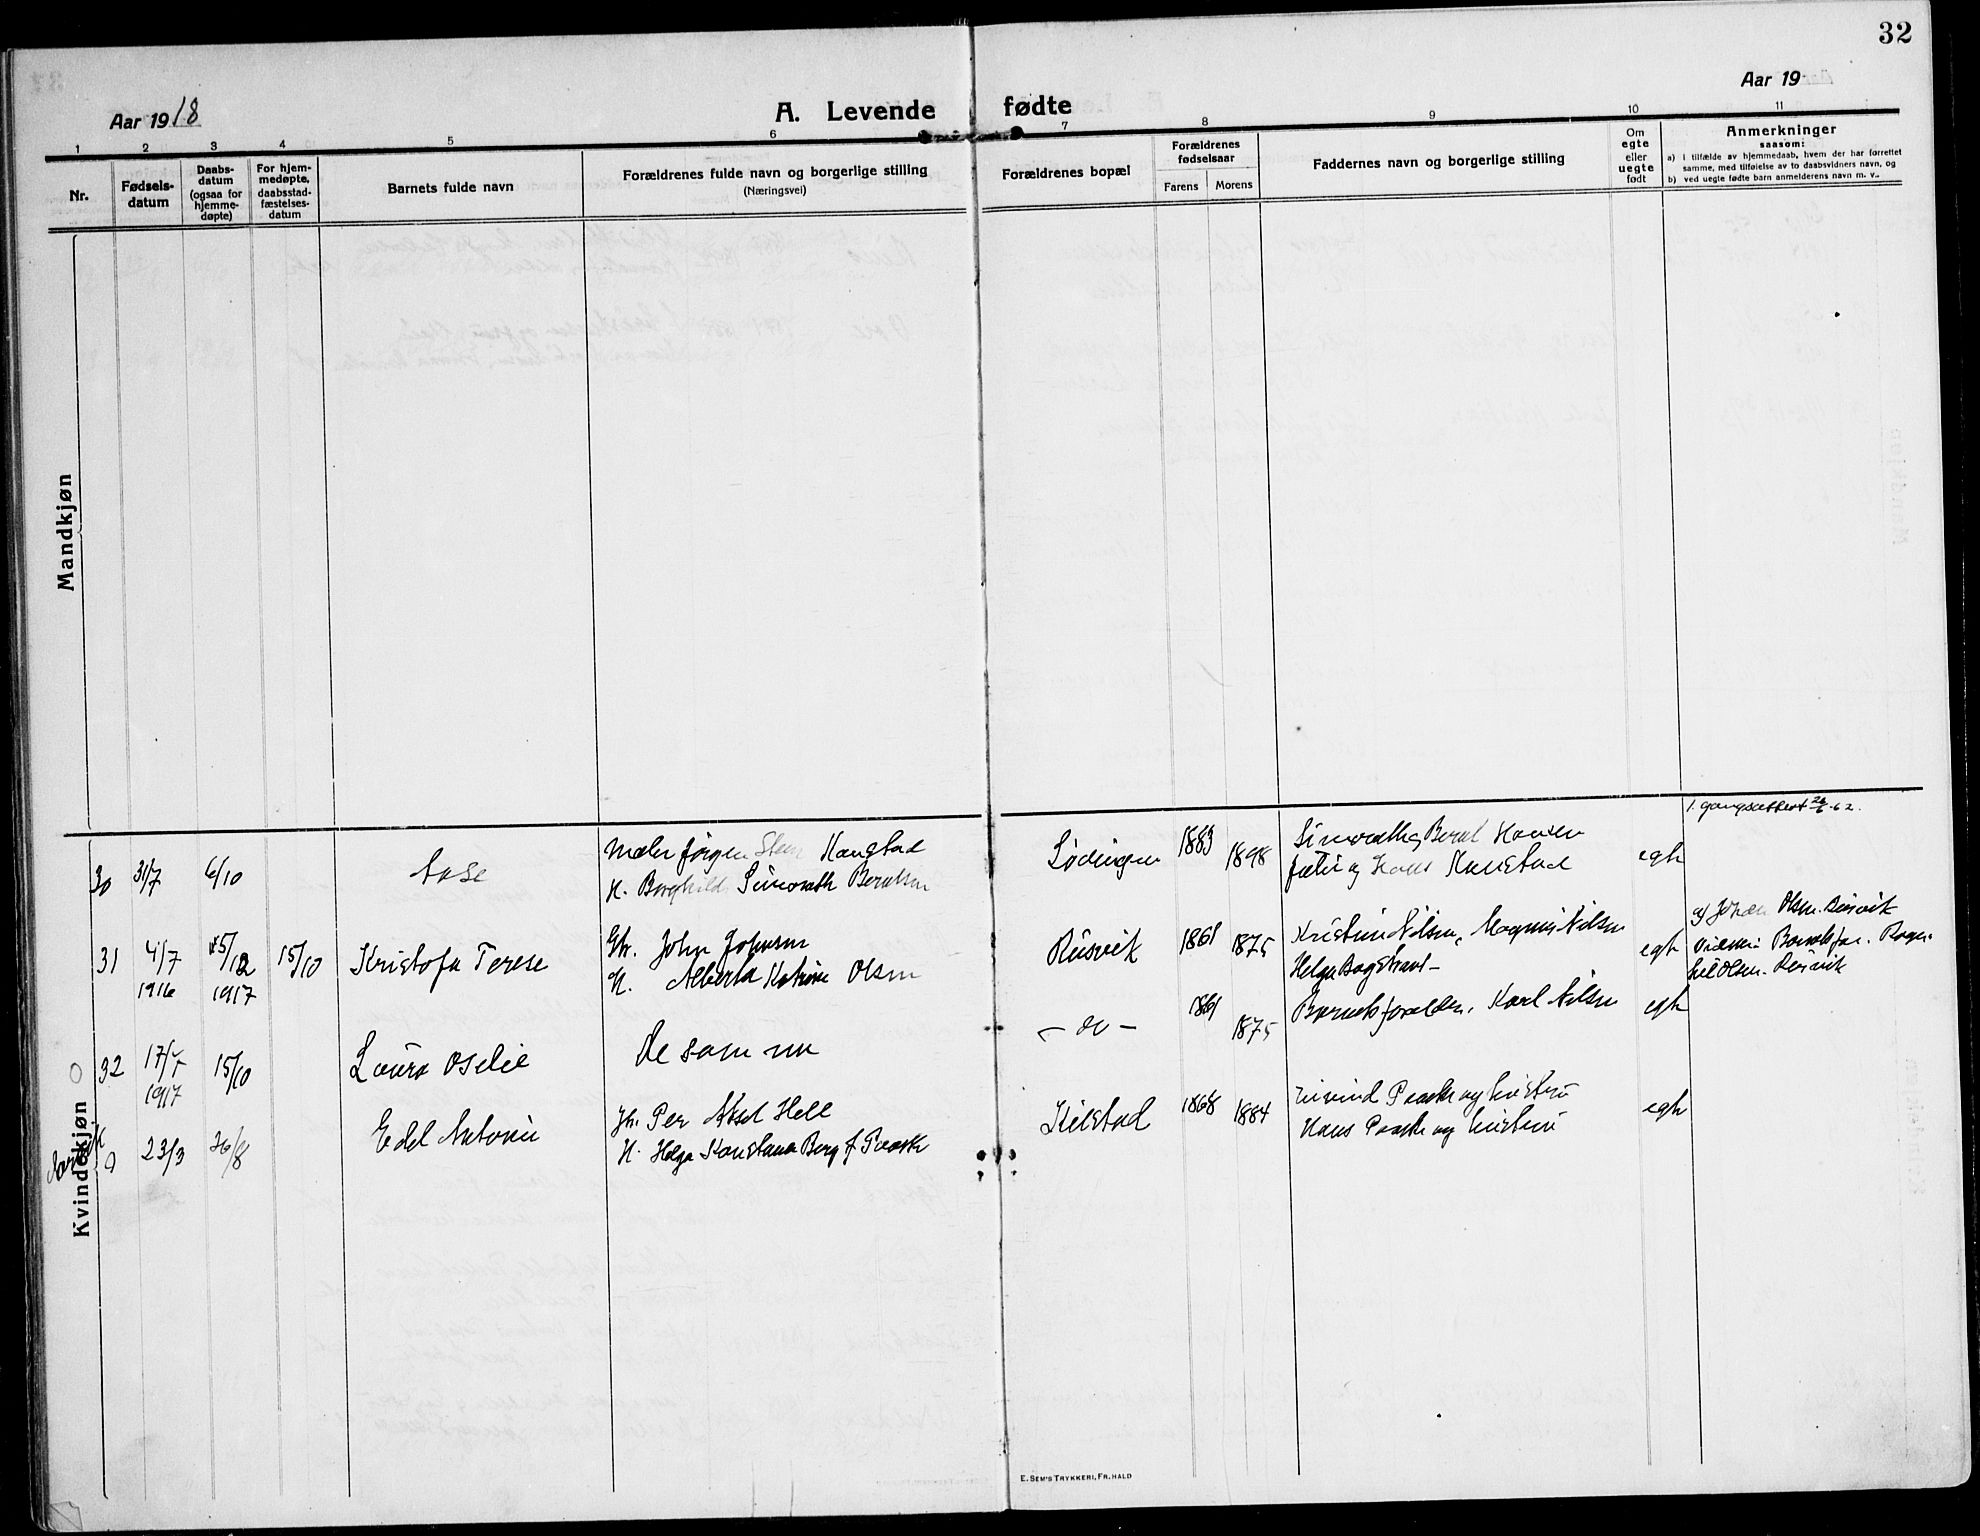 32
Aar 1918
A. Levende fødte
Aar 19
1 2 3 4 5 6 7 8 9 10 11
Nr.
Fødsels-
datum
Daabs-
datum
(ogsaa for
hjemme-
døpte)
For hjem-
medøpte,
daabsstad-
fæstelses-
datum
Barnets fulde navn
Forældrenes fulde navn og borgerlige stilling
(Næringsvei)
Forældrenes bopæl
Forældrenes
fødselsaar
Farens Morens
Faddernes navn og borgerlige stilling
Om
egte
eller
uegte
født
Anmerkninger
saasom:
a) i tilfælde av hjemmedaab, hvem der har forrettet
samme, med tilføielse av to daabsvidners navn, og
b) ved uegte fødte barn anmelderens navn m. v.
Mandkjøn
Kvindekjøn
30 31/7 6/10 Aase
Maler Jørgen Kanstad
H. Borghild Simonsen
Lødingen 1883 1898
Bernt Hansen
og Hans Kanstad
egte
31 4/7 1916 1917 15/10 Kristofa Terese
Gbr. John Johnsen
H. Alberta Katrine Olsen
Rinsvik 1861 1875
Kristine Nilsen, Magnus Nilsen
Helga Bogstrand
egte
a/ Johan Olsen
Olsen
32 17/7 1917 15/10 Laura Oselie
De samme
- do - 1861 1875
Barnets forældre, Karl Nilsen
egte
0 23/3 26/8 Edel Antonie
Per Aksel Hell
H. Helga Konstanse Berg f. Paaske
Kilstad 1868 1884
Eivind Paaske og hustru
Hans Paaske og hustru
egte
E. SEM'S TRYKKERI, FR. HALD